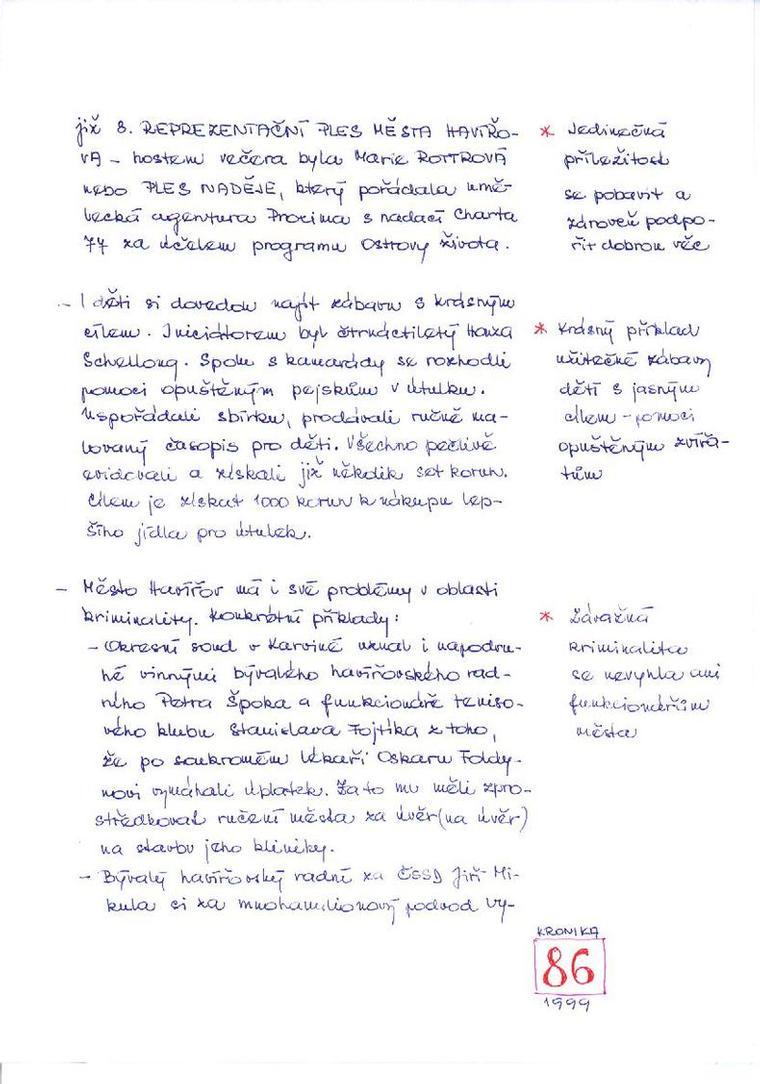 již 8. REPREZENTAČNÍ PLES MĚSTA HAVÍŘO-
VA – hostem večera byla Marie ROTTROVÁ
nebo PLES NADĚJE, který pořádala umě-
lecká agentura Proxima s nadací Charta
77 za účelem programu Ostrovy života.
* Jedinečná
příležitost
se pobavit a
zároveň podpo-
řit dobrou věc
- I děti si dovedou najít zábavu s krásným
cílem. Iniciátorem byl čtrnáctiletý Honza
Schellong. Spolu s kamarády se rozhodli
pomoci opuštěným pejskům v útulku.
Uspořádali sbírku, prodávali ručně ma-
lovaný časopis pro děti. Všechno pečlivě
evidovali a získali již někdik set korun.
Cílem je získat 1000 korun k nákupu lep-
šího jídla pro útulek.
* Krásný příklad
užitečné zábavy
dětí s jasným
cílem - pomoci
opuštěným zvířá-
tům
- Město Havířov má i své problémy v oblasti
kriminality. Konkrétní příklady:
- Okresní soud v Karviné uznal i napodru-
hé vinnými bývalého havířovského rad-
ního Petra Špoka a funkcionáře teniso-
vého klubu Stanislava Fojtíka z toho,
že po soukromém lékaři Oskaru Foldy-
novi vymáhali úplatek. Za to mu měli zpro-
středkovat ručení města za úvěr (na úvěr)
na stavbu jeho kliniky.
- Bývalý havířovský radní za ČSSD Jiří Mi-
kula si za mnohamilionový podvod vy-
* Závažná
kriminalita
se nevyhla ani
funkcionářům
města
KRONIKA
86
1999